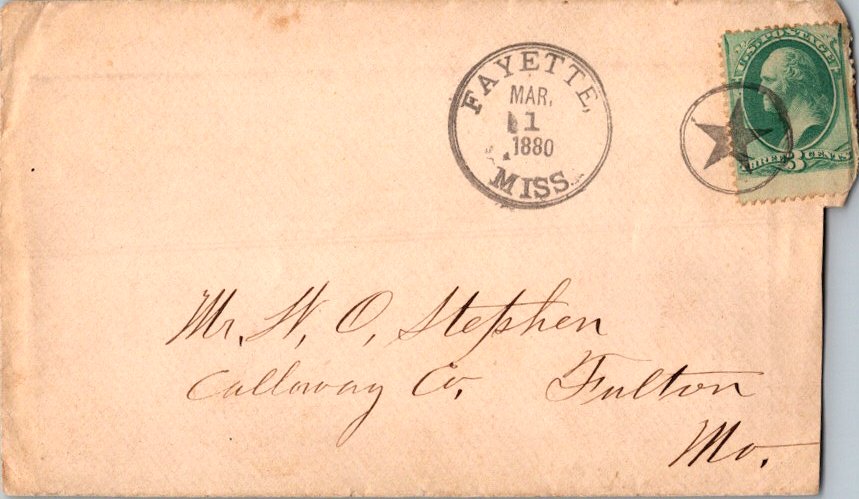 FAYETTE,
MAR,
1
1880
MISS.
U.S. POSTAGE
THREE 3 CENTS
Mr. W. O, Stephen
Calloway Co. Fulton
Mo.